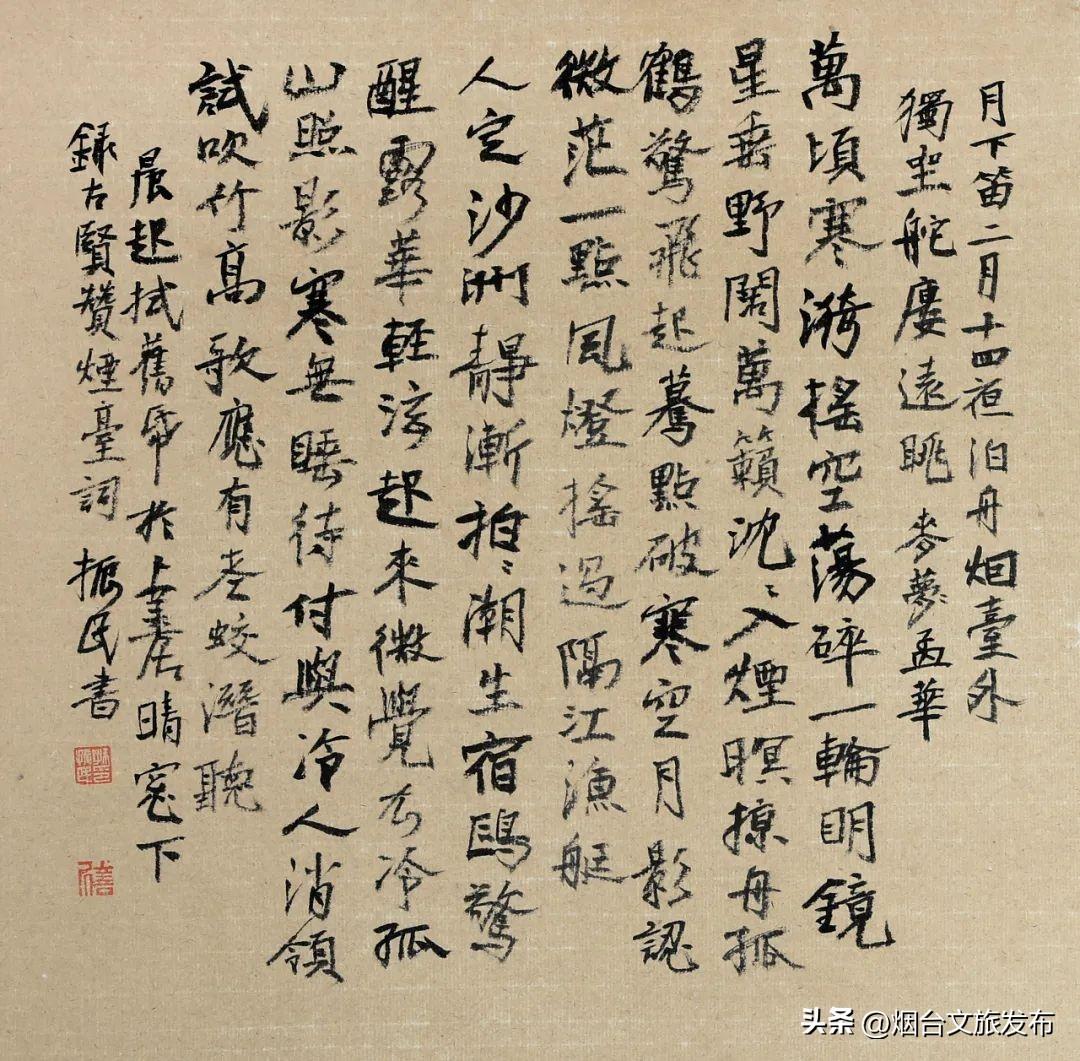 月下笛二月十四夜泊舟烟臺外
獨坐舵廔遠眺 麥夢孟華
萬頃寒漪摇空蕩碎一輪明鏡
星垂野闊萬籟沈〻入煙暝掠舟孤
鶴驚飛起驀點破寒空月影認
微茫一點風燈摇過隔江漁艇
人定沙洲靜漸拍〻潮生宿鷗驚
醒露華輕泫起來微覺衣冷孤
山照影寒無睡待付與冷人消領
試吹竹高歌應有老蛟潛聽
晨起拭舊帋於上善居晴窓下
録古賢贊煙臺詞 振民書
头条 @烟台文旅发布